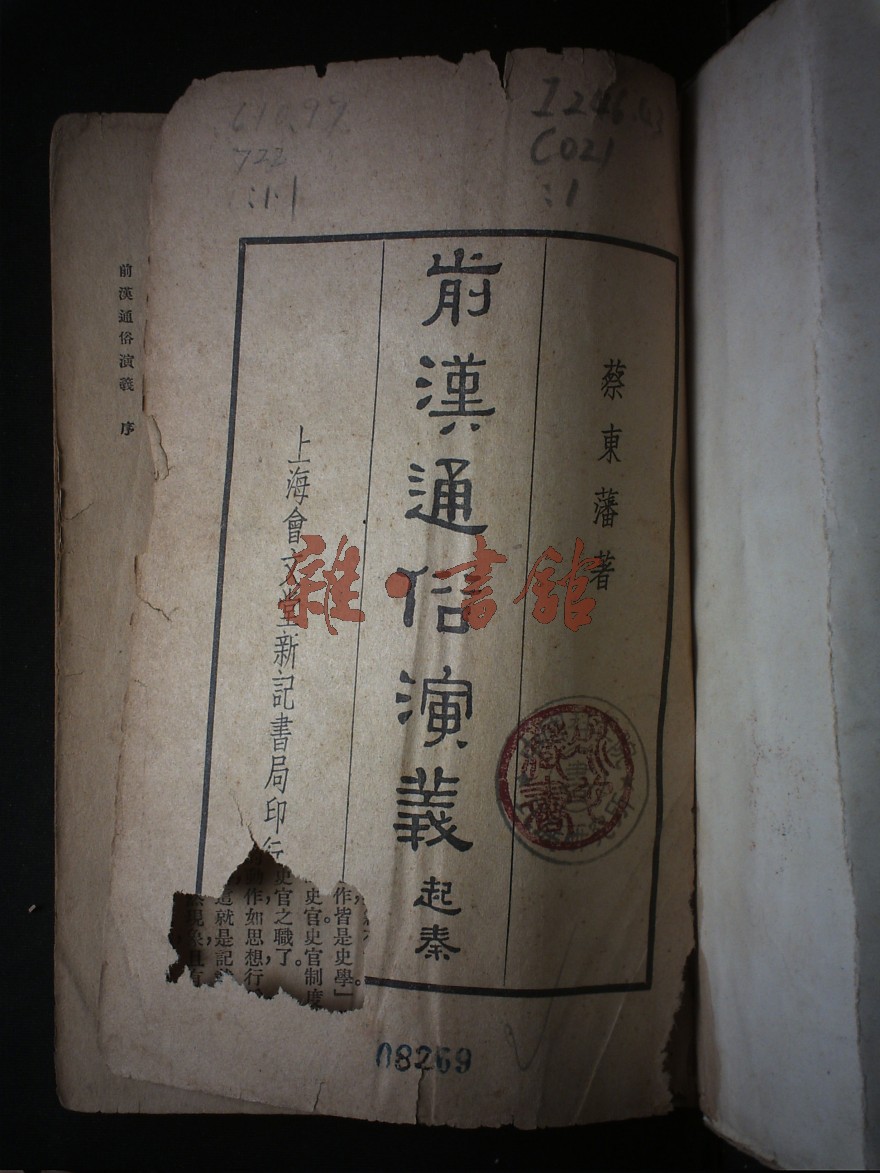 I246.43
C021
:1
610.97
723
蔡東藩著
前漢通俗演義 起秦
上海會文堂新記書局印行
前漢通俗演義 序
作皆是史學」。
史官。史官制度
史官之職了。
作如思想行
這就是記
雜·書館
08269